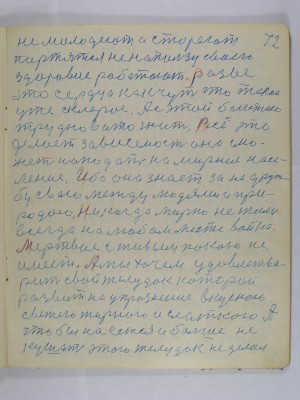 не молодеют а стареют 72
портятся не на пользу своего
здоровие работают. Разве
это сердца как чут что такое
уже склероз. А с этой болезнею
трудно вато жить. Всё это
делает зависемость она смо-
жет нападат на мирное насе-
ление. Ибо она знает за не друж-
бу свою между людями и при-
родою. Никогда мирно не жили
всегда на любом месте война.
Мертвые с живым покою не
имеет. А мы хочем удовлетво-
рит свой желудок которой
развит на употребление вкусного
свежего жирного и сладкого А
что бы наестся и больше не
кушать этого желудок не делал